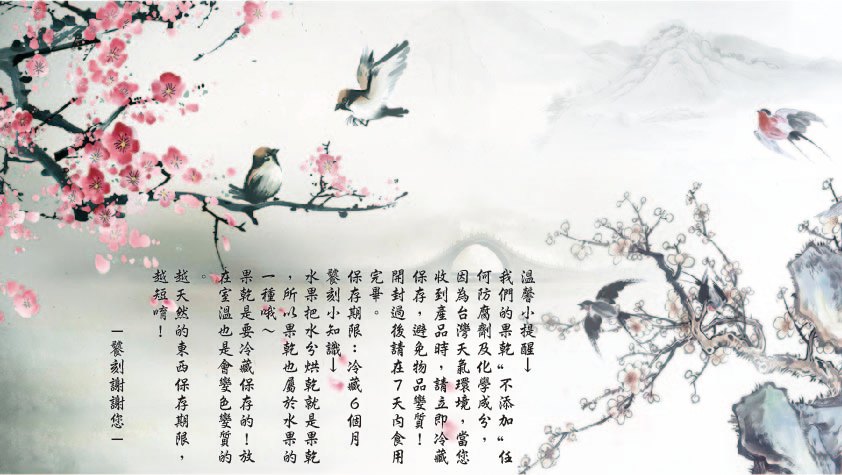 溫馨小提醒↓
我們的果乾“不添加“任
何防腐劑及化學成分，
因為台灣天氣環境，當您
收到產品時，請立即冷藏
保存，避免物品變質！
開封過後請在7天內食用
完畢。
保存期限：冷藏6個月
饕刻小知識↓
水果把水分烘乾就是果乾
，所以果乾也屬於水果的
一種哦～
果乾是要冷藏保存的！放
在室溫也是會變色變質的
。
越天然的東西保存期限，
越短唷！
—饕刻謝謝您—